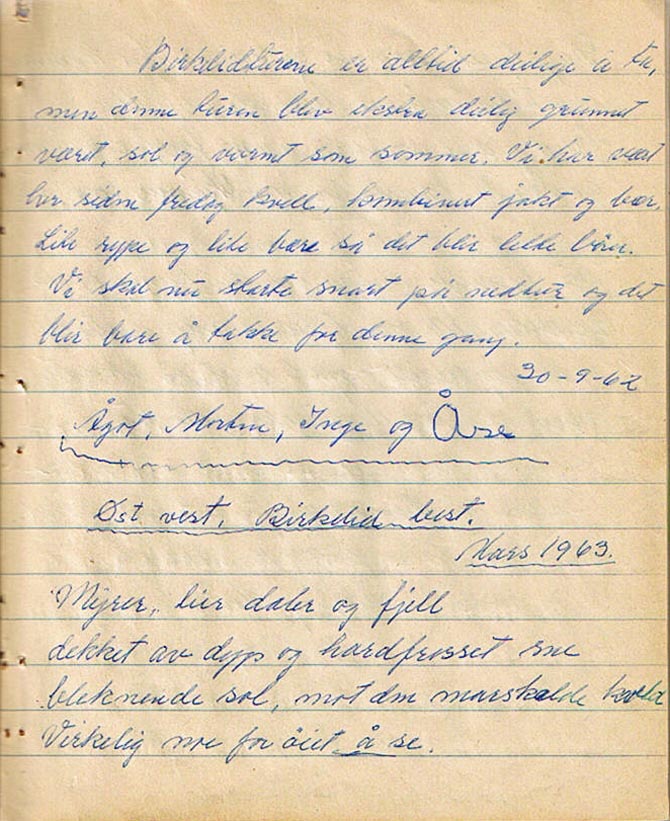 Birkelidturene er alltid deilige å ta,
men denne turen blev ekstra deilig grunnet
været, sol og varmt som sommer. Vi har vært
her siden fredag kveld, kombinert jakt og bær.
Lite rype og lite bære så det blir lette bører.
Vi skal nu starte snart på nedtur og det
blir bare å takke for denne gang.
30-9-62
Ågot, Morten, Inge og Åse
Øst vest, Birkelid best.
Mars 1963.
Myrer, lier daler og fjell
dekket av dyp og hardfrosset sne
bleknende sol, mot den marskalde kveld
Virkelig noe for öiet å se.